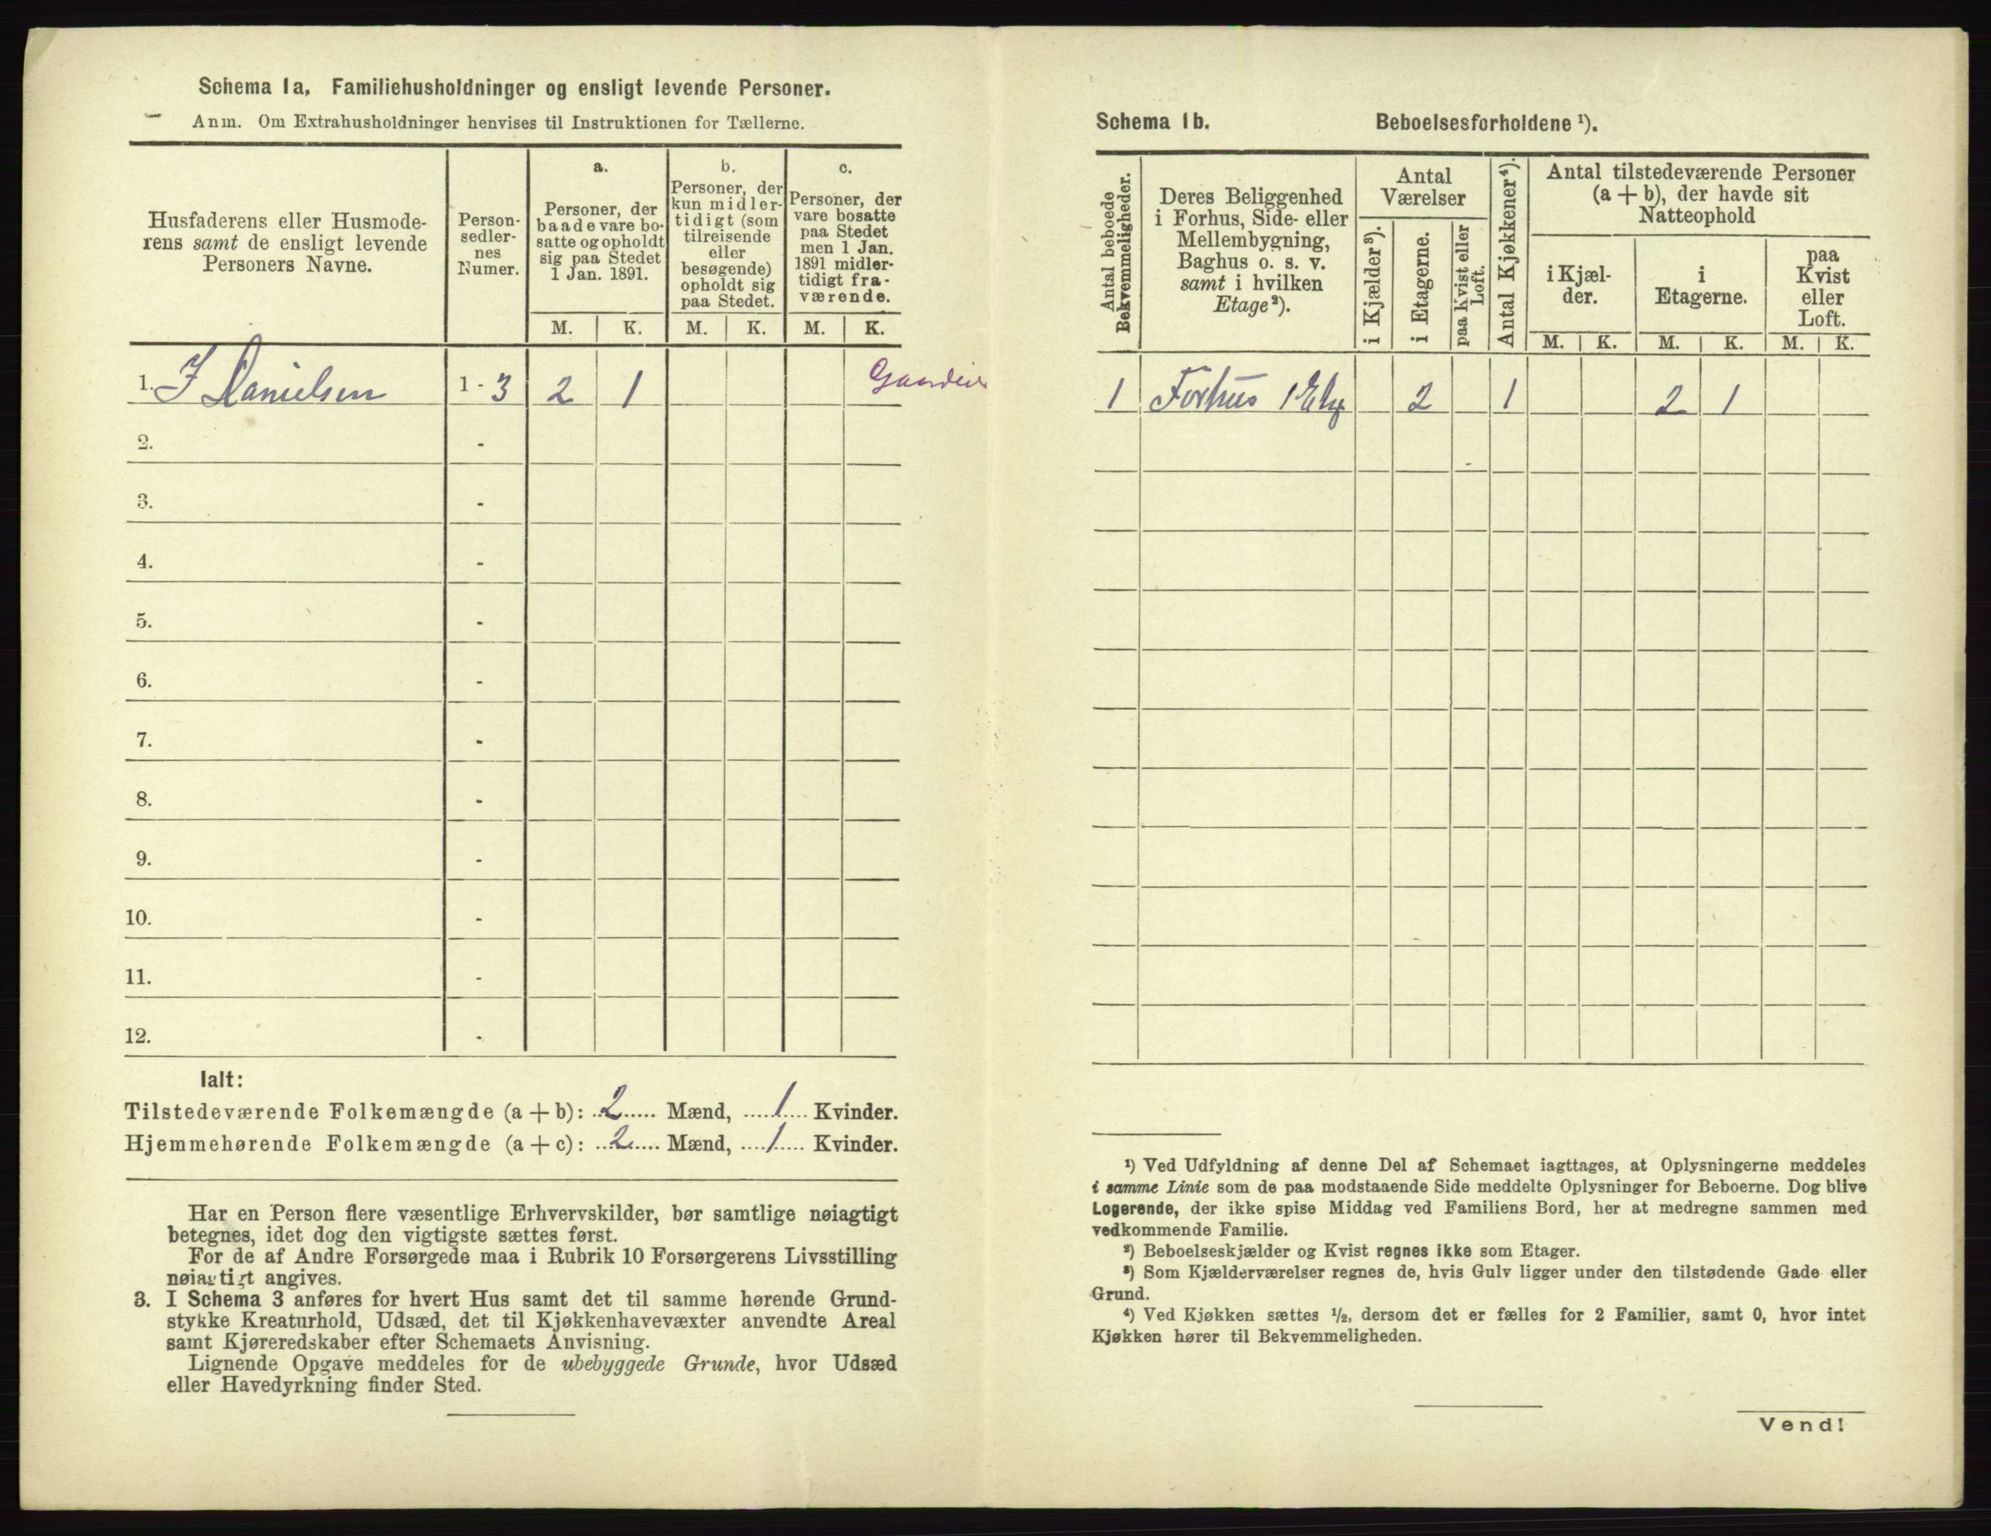 Schema 1a. Familiehusholdninger og ensligt levende Personer.
Anm. Om Extrahusholdninger henvises til Instruktionen for Tællerne.
Husfaderens eller Husmode-
rens samt de ensligt levende
Personers Navne.
Person-
sedler-
nes
Numer.
a.
Personer, der
baade vare bo-
satte og opholdt
sig paa Stedet
1 Jan. 1891.
b.
Personer, der
kun midler-
tidigt (som
tilreisende
eller
besøgende)
opholdt sig
paa Stedet.
c.
Personer, der
vare bosatte
paa Stedet
men 1 Jan.
1891 midler-
tidigt fra-
værende.
M. K. M. K. M. K.
1. J Danielsen 1 - 3 2 1 Gaardeier
2. -
3. -
4. -
5. -
6. -
7. -
8. -
9. -
10. -
11. -
12. -
Ialt:
Tilstedeværende Folkemængde (a + b): 2 Mænd, 1 Kvinder.
Hjemmehørende Folkemængde (a + c): 2 Mænd, 1 Kvinder.
Har en Person flere væsentlige Erhvervskilder, bør samtlige nøiagtigt
betegnes, idet dog den vigtigste sættes først.
For de af Andre Forsørgede maa i Rubrik 10 Forsørgerens Livsstilling
nøiagtigt angives.
3. I Schema 3 anføres for hvert Hus samt det til samme hørende Grund-
stykke Kreaturhold, Udsæd, det til Kjøkkenhavevæxter anvendte Areal
samt Kjøreredskaber efter Schemaets Anvisning.
Lignende Opgave meddeles for de ubebyggede Grunde, hvor Udsæd
eller Havedyrkning finder Sted.
Schema 1b. Beboelsesforholdene ¹).
Antal beboede
Bekvemmeligheder.
Deres Beliggenhed
i Forhus, Side- eller
Mellembygning,
Baghus o. s. v.
samt i hvilken
Etage²).
Antal
Værelser
i Kjælder³).
i Etagerne.
paa Kvist eller
Loft.
Antal Kjøkkener⁴).
Antal tilstedeværende Personer
(a + b), der havde sit
Natteophold
i Kjæl-
der.
i
Etagerne.
paa
Kvist
eller
Loft.
M. K. M. K. M. K.
1 Forhus 1 Etg 2 1 2 1
¹) Ved Udfyldning af denne Del af Schemaet iagttages, at Oplysningerne meddeles
i samme Linie som de paa modstaaende Side meddelte Oplysninger for Beboerne. Dog blive
Logerende, der ikke spise Middag ved Familiens Bord, her at medregne sammen med
vedkommende Familie.
²) Beboelseskjælder og Kvist regnes ikke som Etager.
³) Som Kjælderværelser regnes de, hvis Gulv ligger under den tilstødende Gade eller
Grund.
⁴) Ved Kjøkken sættes ½, dersom det er fælles for 2 Familier, samt 0, hvor intet
Kjøkken hører til Bekvemmeligheden.
Vend!